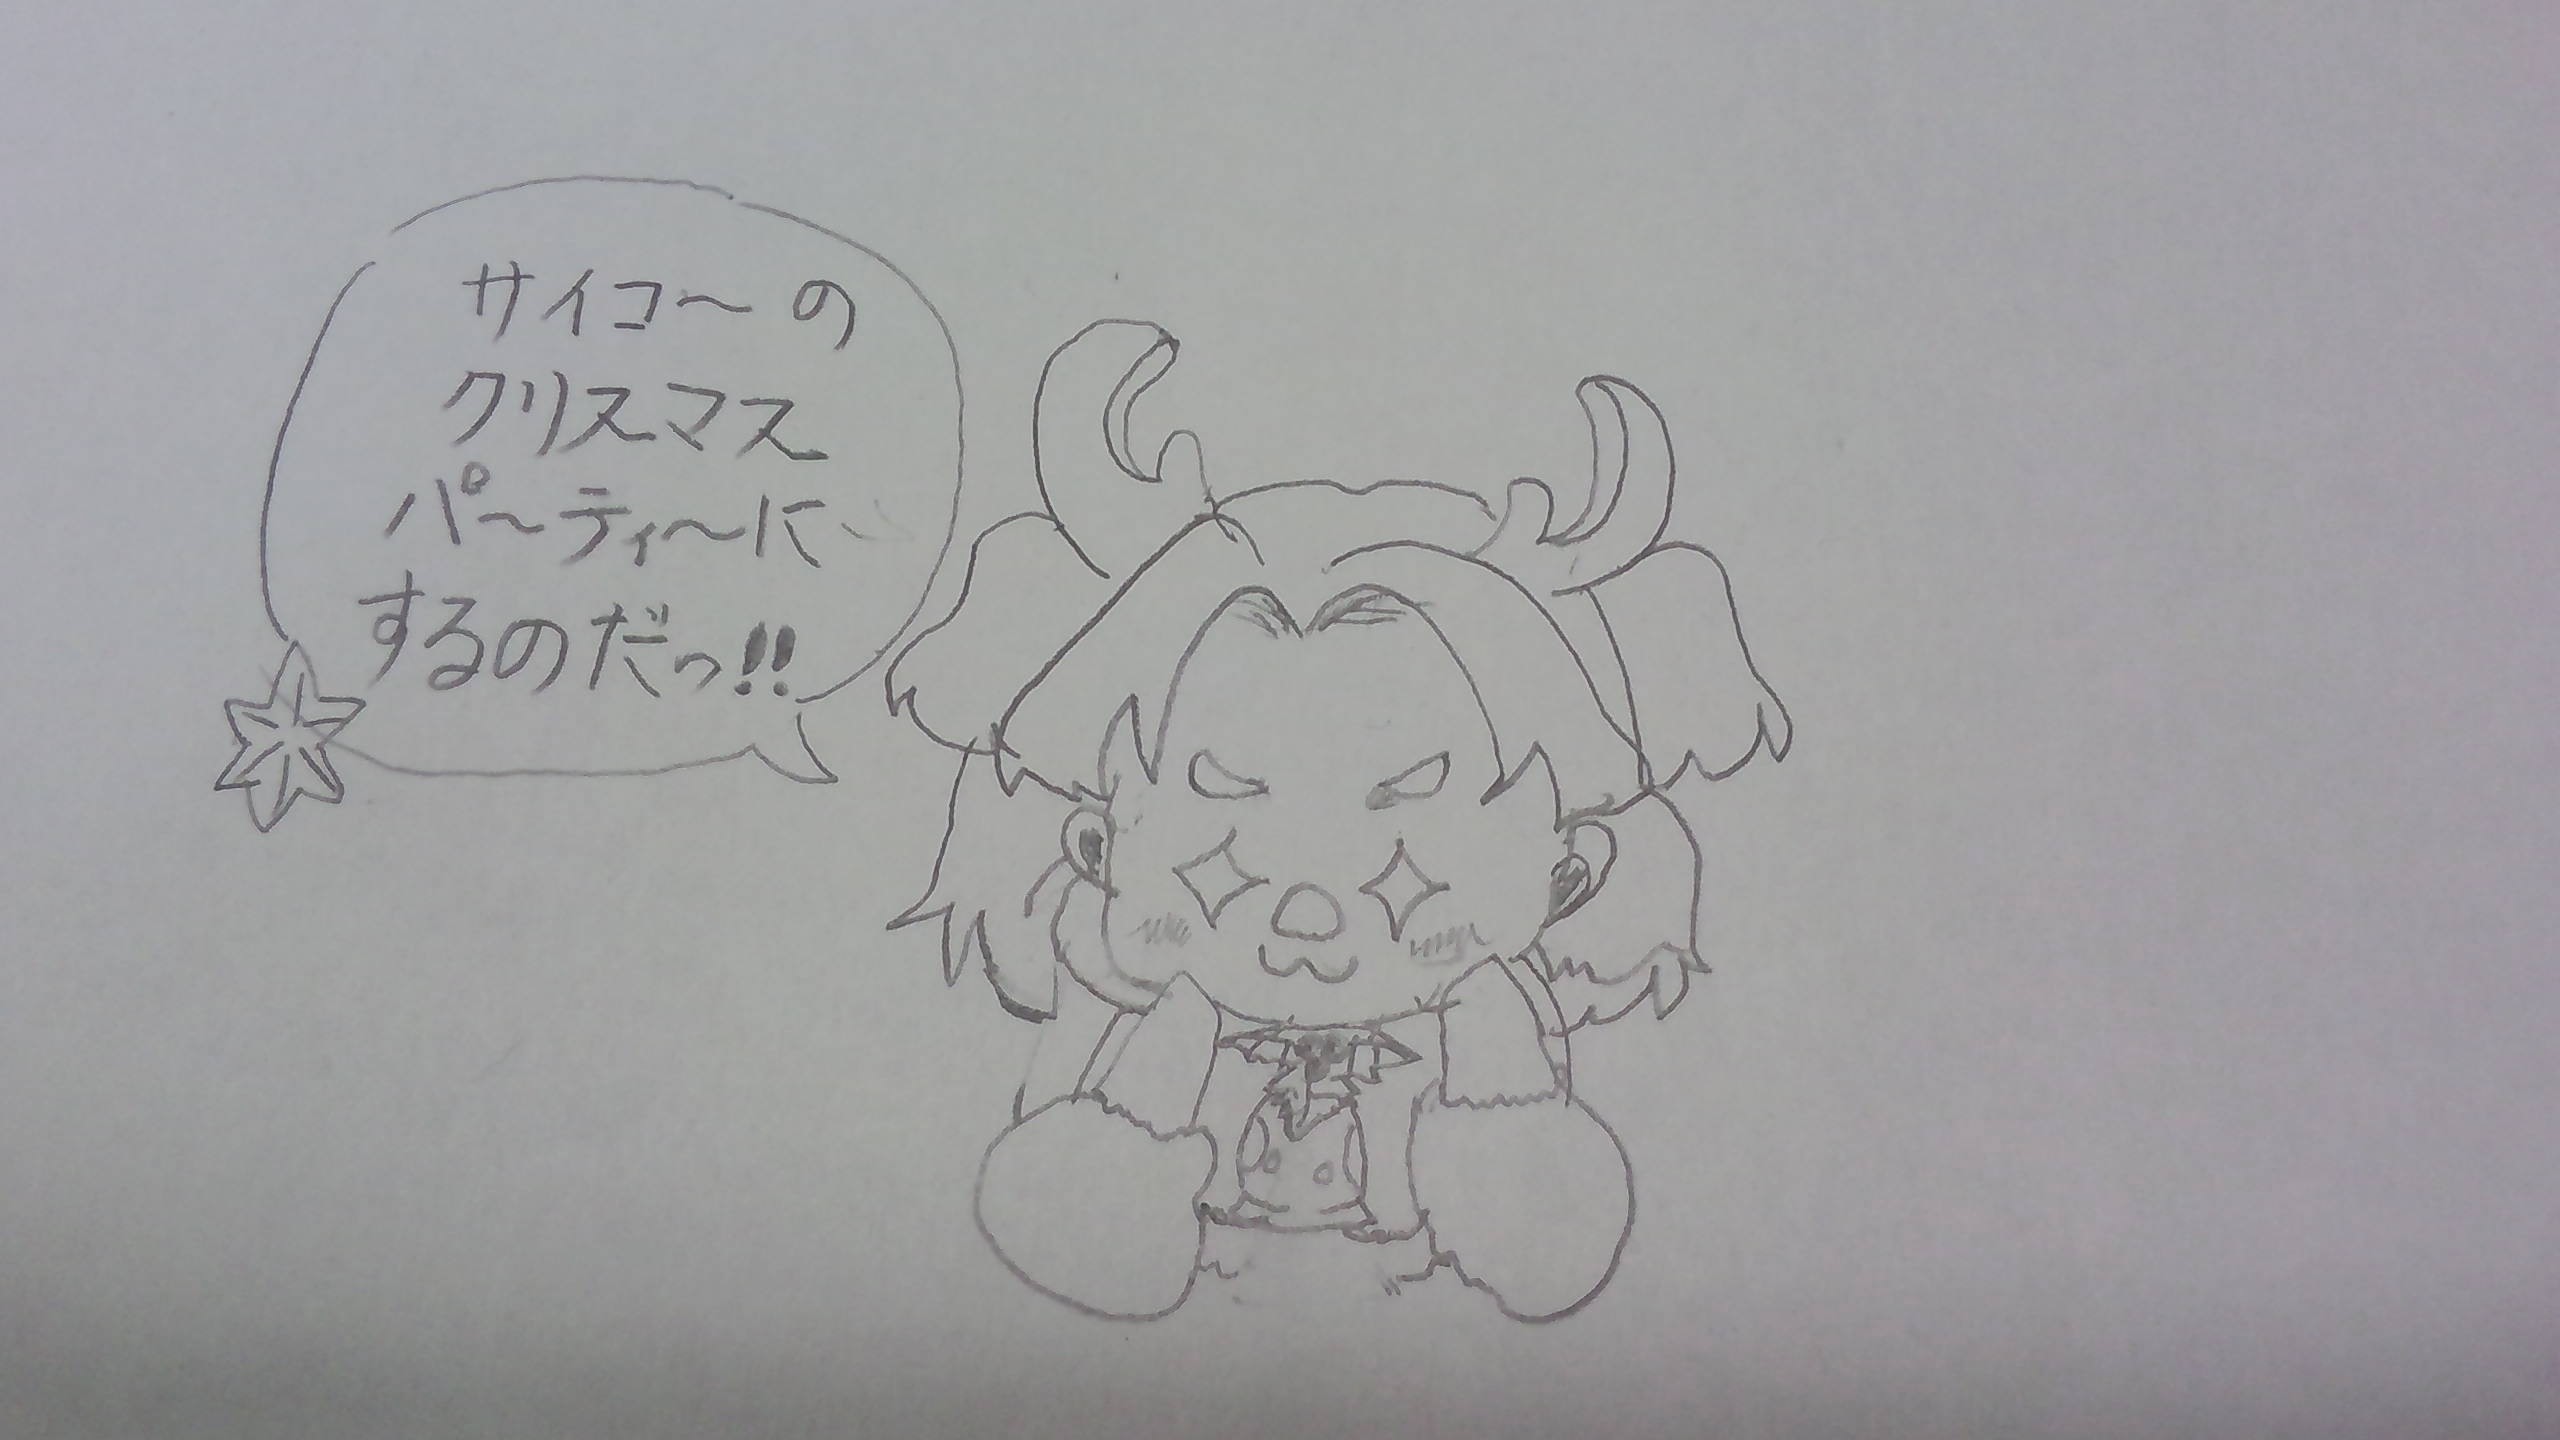 サイコ〜の
クリスマス
パ〜ティ〜に
するのだっ!!